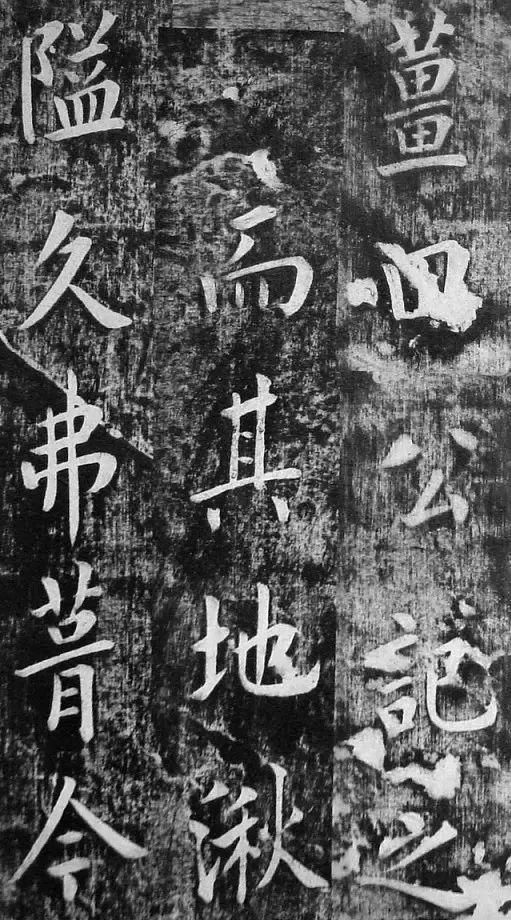 薑公記之
而其地湫
隘久弗葺今